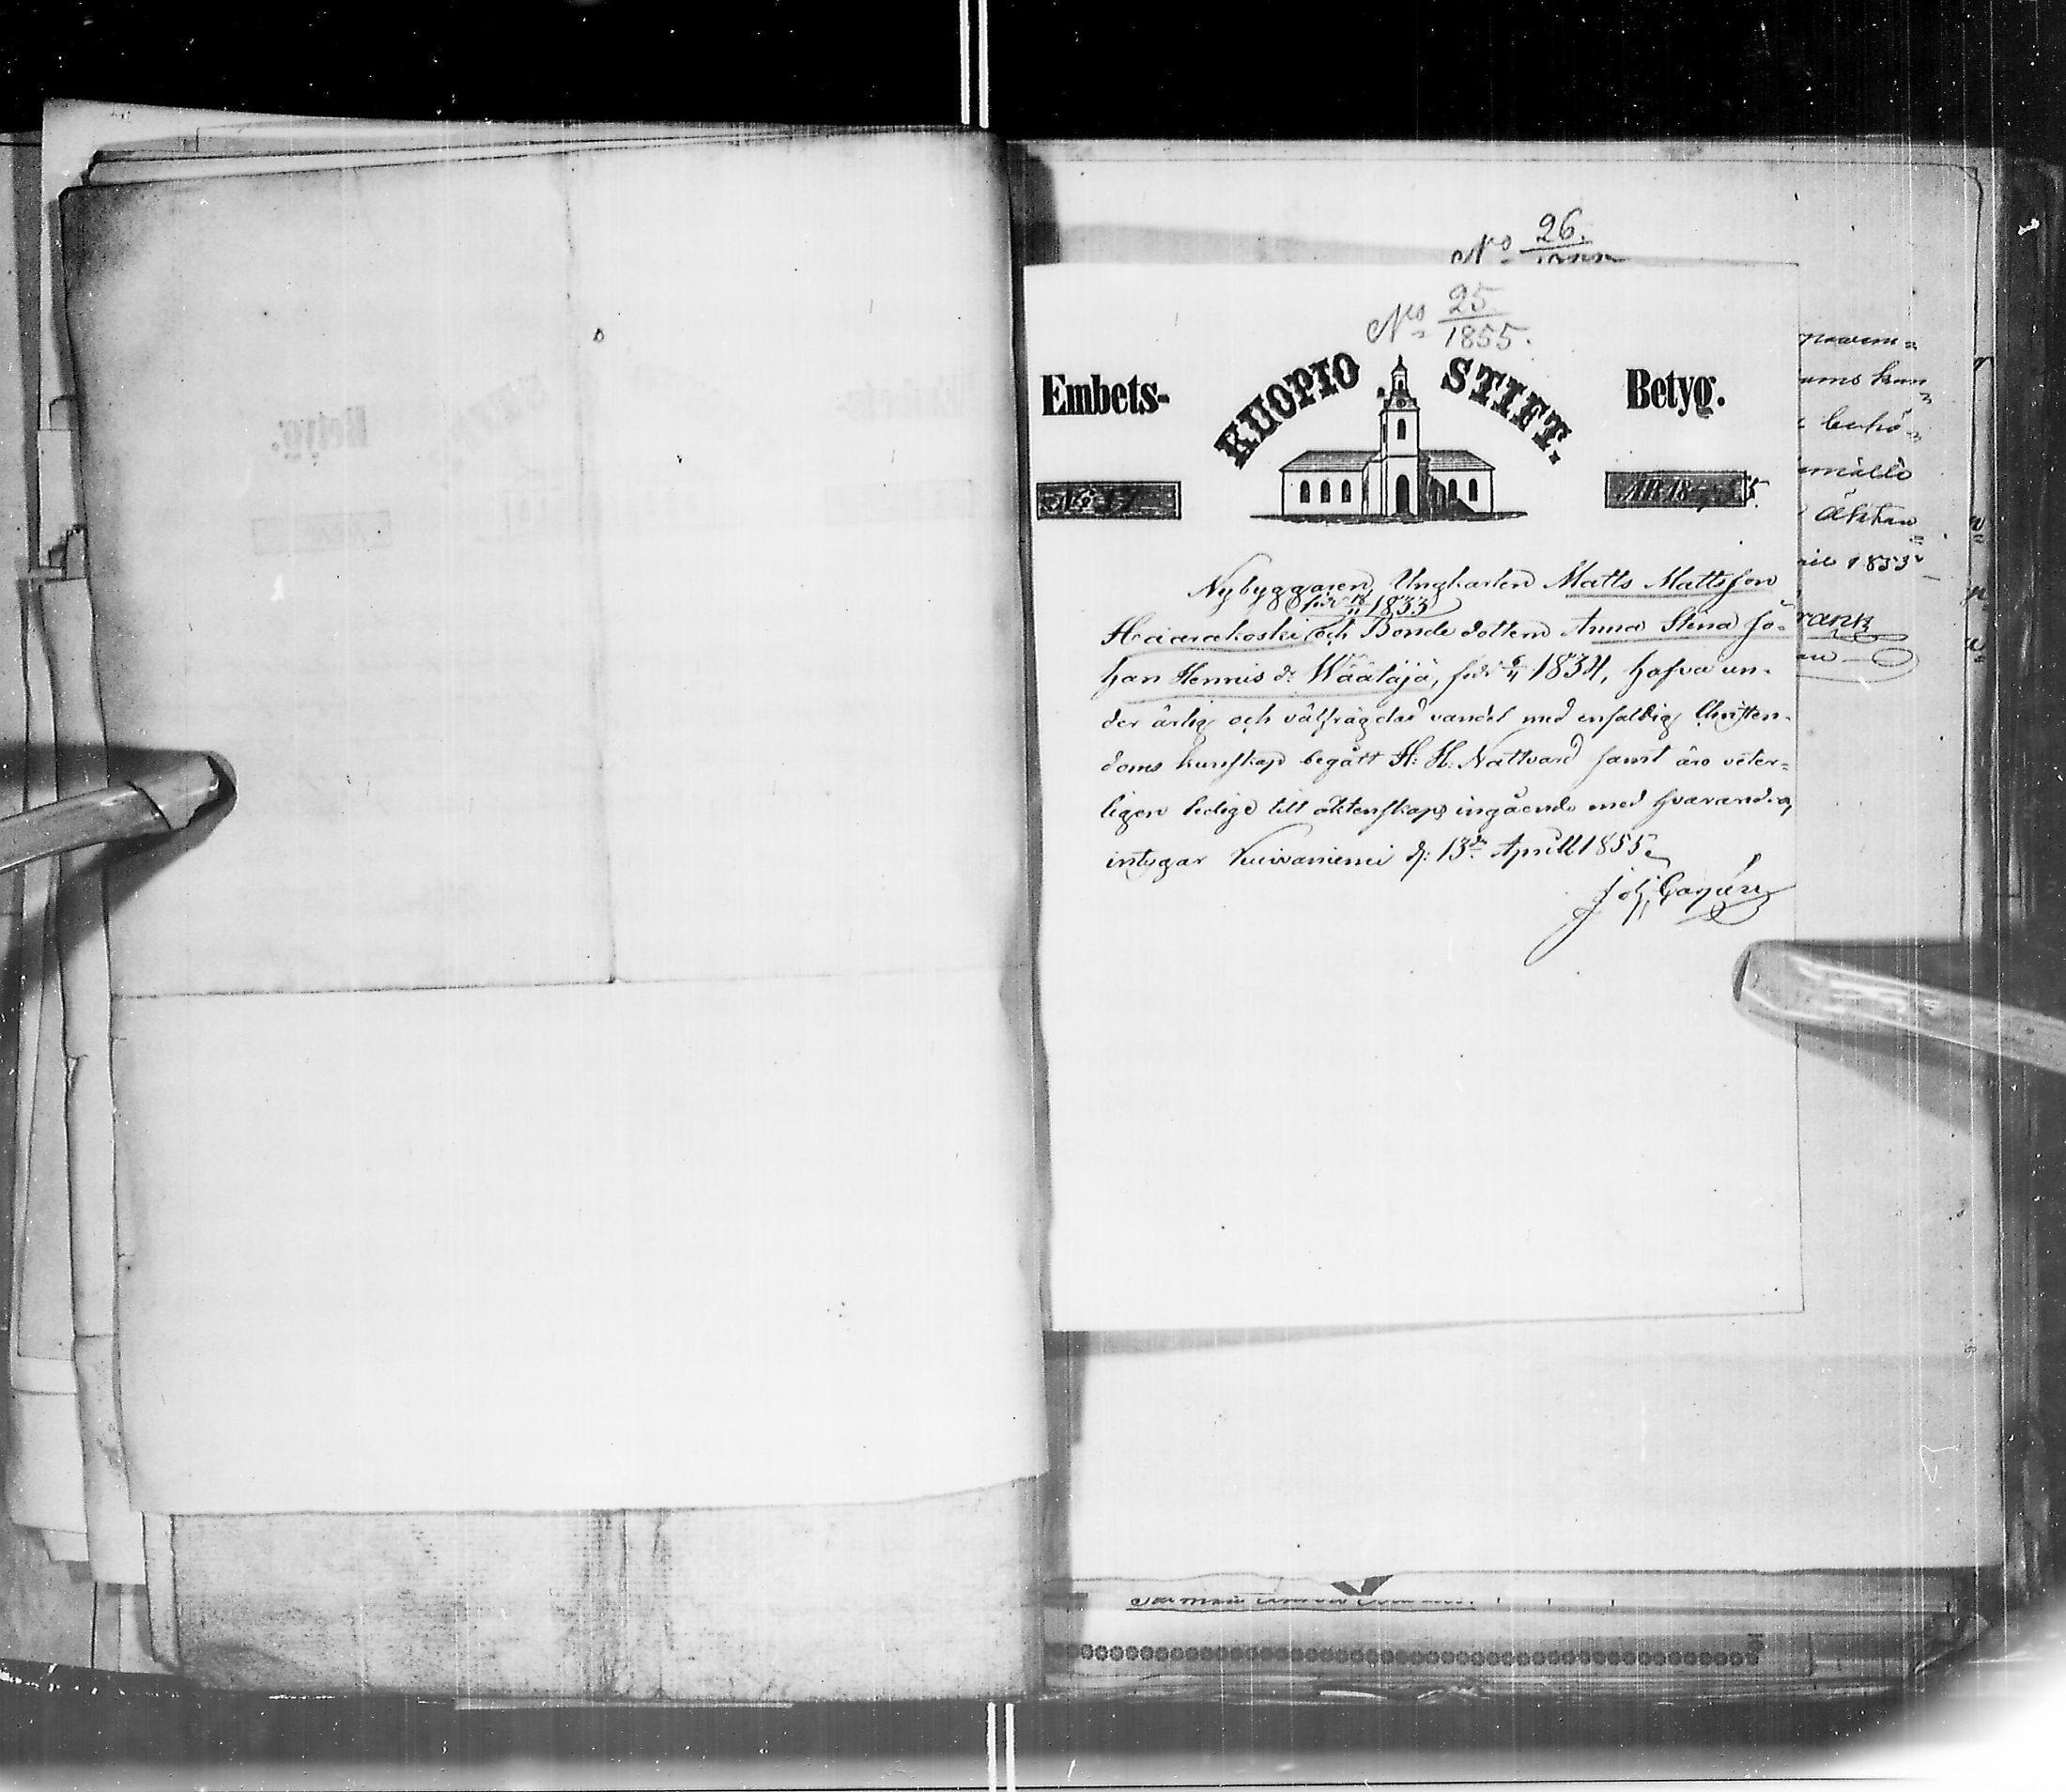 No 26.
No 25
1855.
Embets- KUOPIO STIFT. Betyg.
No 17 ÅR 18 55.
Nybyggaren Ungkarlen Matts Mattsson
född 18/11 1833
Haarakoski och Bonde dottern Anna Stina Jo-
han Henriks dr Wäätäjä, född 6/11 1834, hafva un-
der ärlig och välfrägdad vandel med enfaldig Christen-
doms kunskap begått H. H. Nattvard samt äro veter-
ligen ledige till äktenskaps ingående med hvarandra,
intygar Kuivaniemi d. 13de Aprill 1855.
Joh Gargén
ums kun
behö-
Äktan
1855